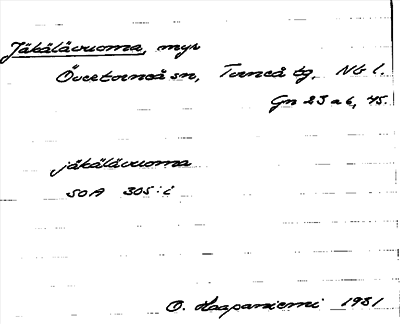 Jäkälävuoma, myr
Övertorneå sn, Torneå tg, Nb l.
Gn 23 a 6, 45.
jäkälävuoma
SOA 305:2
O. Haapaniemi 1931